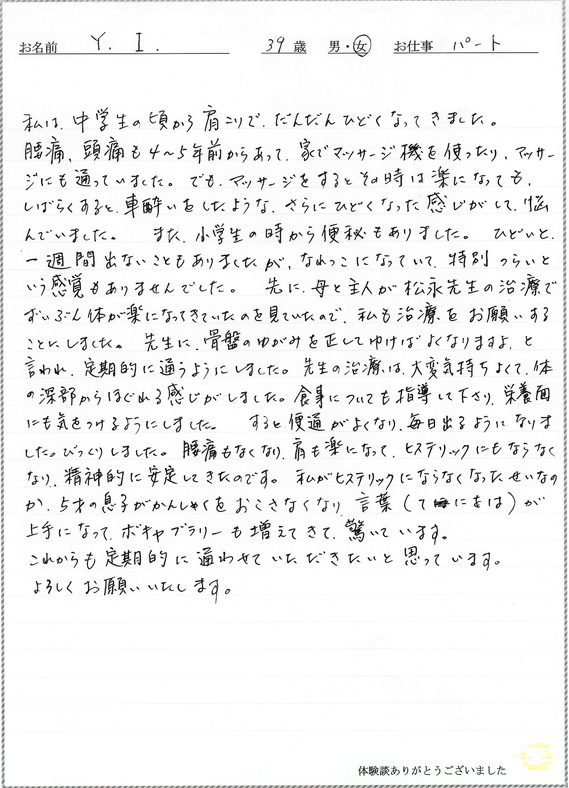 お名前 Y. I. 39歳 男・女 お仕事 パート
私は、中学生の頃から肩こりで、だんだんひどくなってきました。
腰痛、頭痛も4〜5年前からあって、家でマッサージ機を使ったり、マッサー
ジにも通っていました。でも、マッサージをするとその時は楽になっても、
しばらくすると、車酔いをしたような、さらにひどくなった感じがして、悩
んでいました。 また、小学生の時から便秘もありました。ひどいと、
一週間出ないこともありましたが、なれっこになっていて、特別つらいと
いう感覚もありませんでした。 先に、母と主人が松永先生の治療で
ずいぶん体が楽になってきていたのを見ていたので、私も治療をお願いする
ことにしました。 先生に、骨盤のゆがみを正してゆけばよくなりますよ、と
言われ、定期的に通うようにしました。先生の治療は、大変気持ちよくて、体
の深部からほぐれる感じがしました。食事についても指導して下さり、栄養面
にも気をつけるようにしました。 すると便通がよくなり、毎日出るようになりま
した。びっくりしました。腰痛もなくなり、肩も楽になって、ヒステリックにもならなく
なり、精神的に安定してきたのです。私がヒステリックにならなくなったせいなの
か、5才の息子がかんしゃくをおこさなくなり、言葉（てにをは）が
上手になって、ボキャブラリーも増えてきて、驚いています。
これからも定期的に通わせていただきたいと思っています。
よろしくお願いいたします。
体験談ありがとうございました